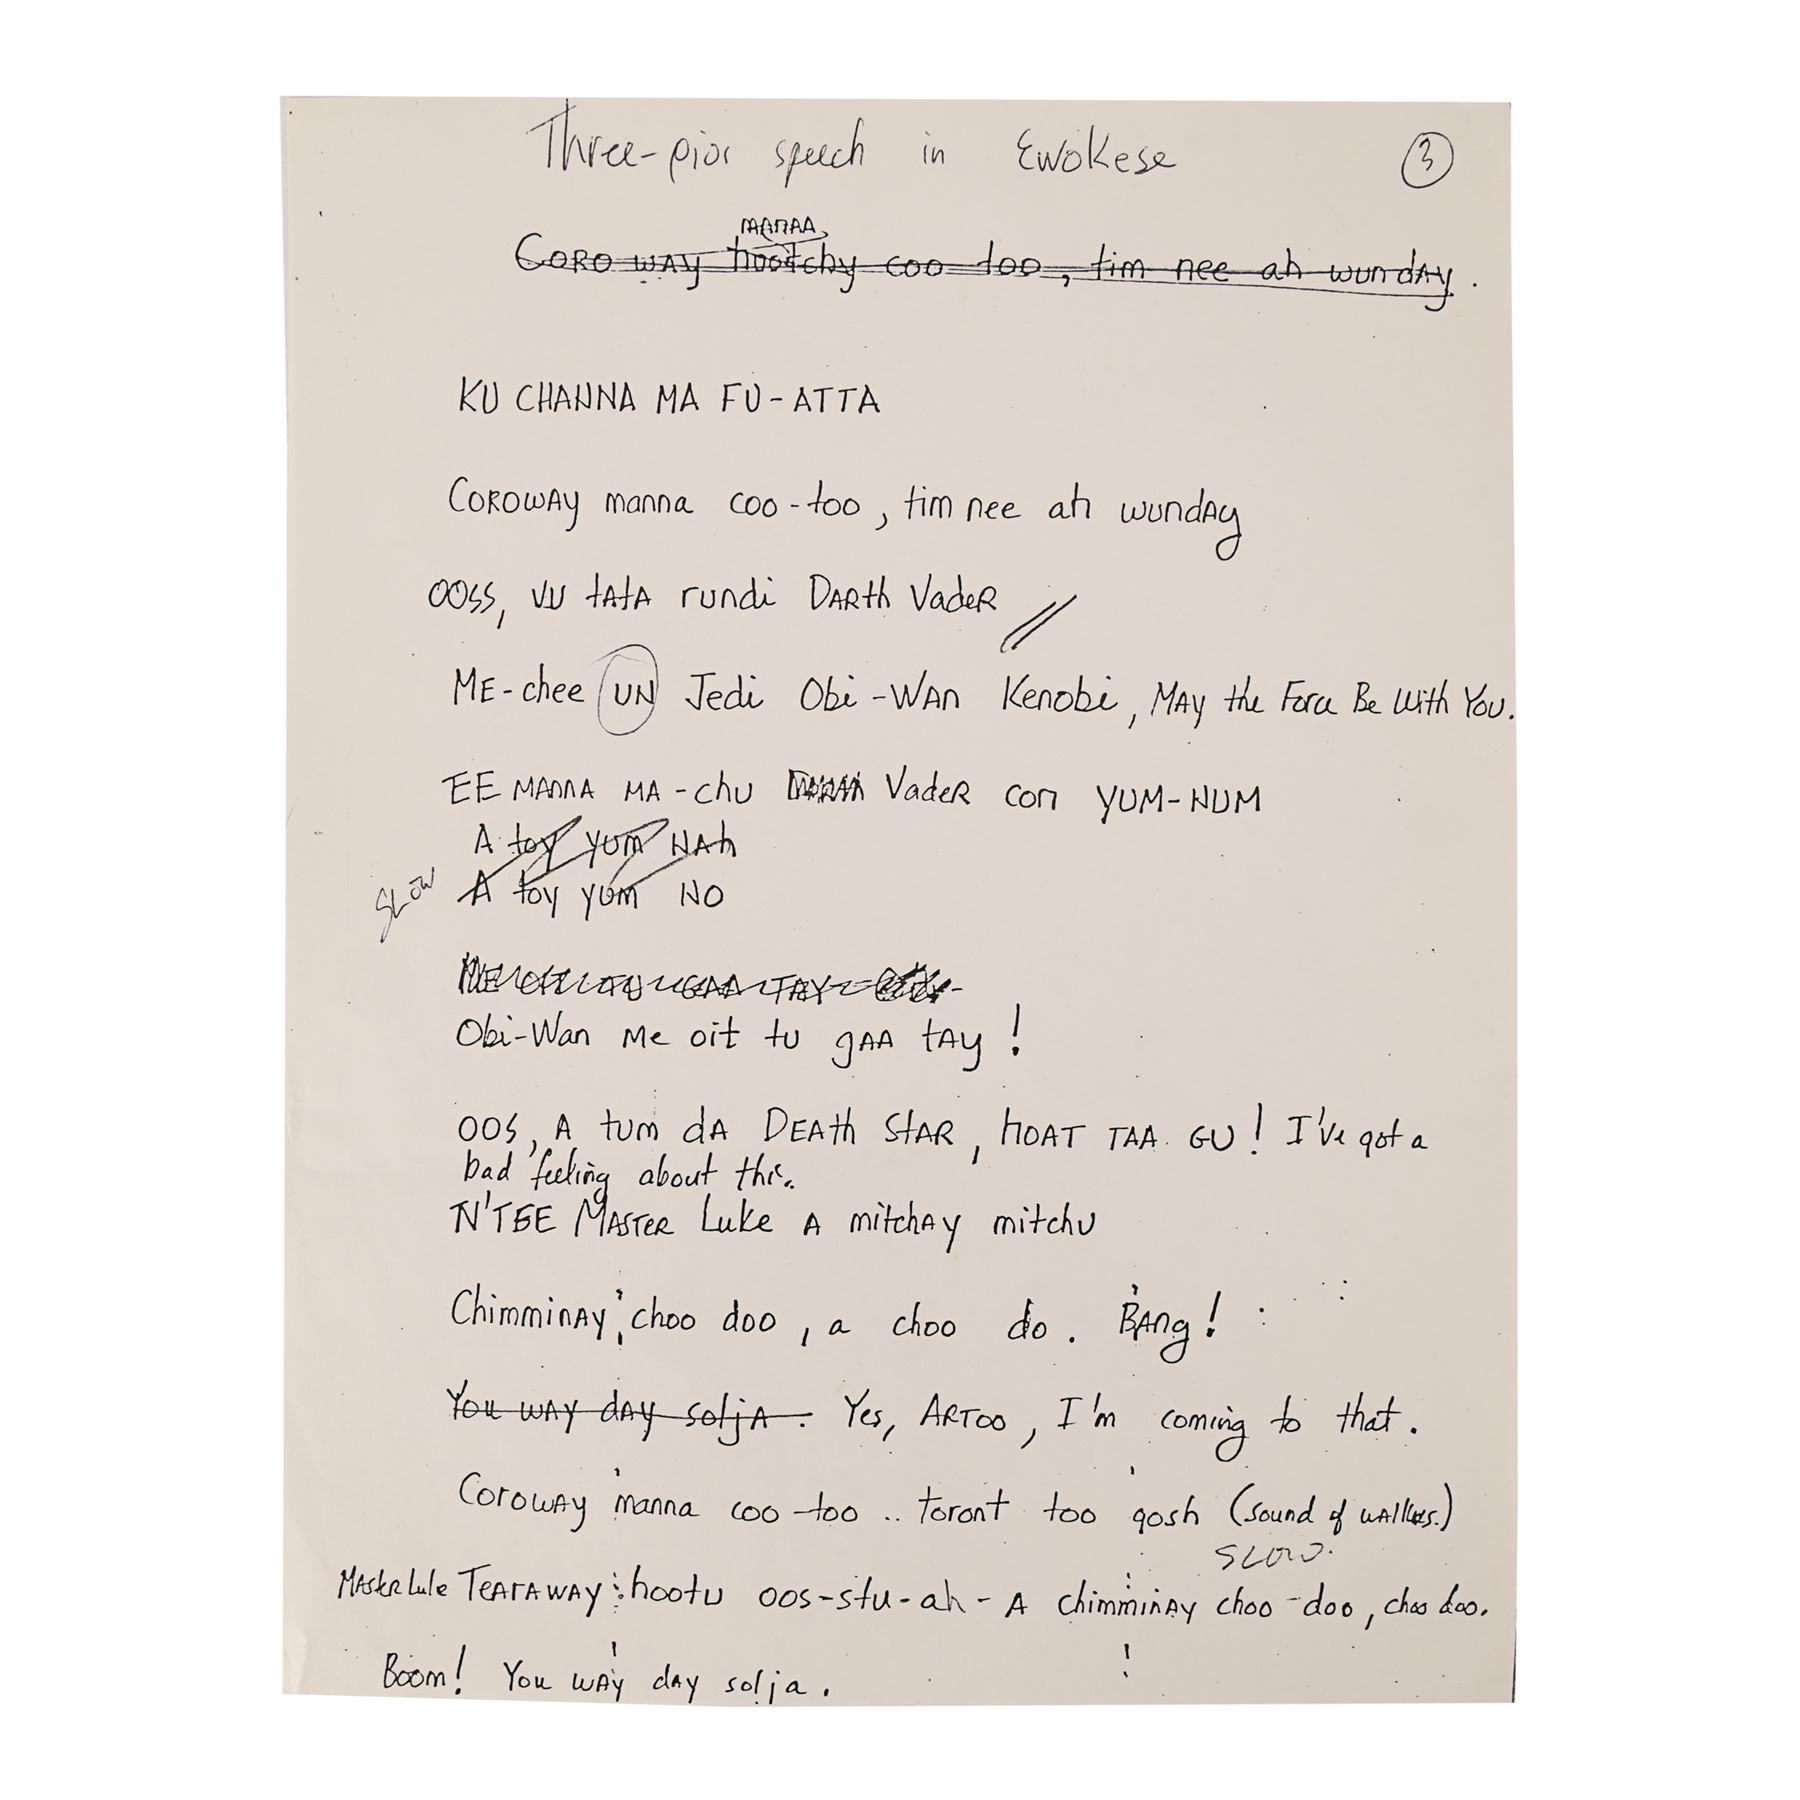 Three-pio's speech in Ewokese 3
manaa
Coro way hootchy coo too, tim nee ah wunday.
KU CHANNA MA FU-ATTA
COROWAY manna coo-too, tim nee ah wunday
OOSS, VU tAtA rundi DARth VadeR //
ME-chee UN Jedi Obi-WAn Kenobi, MAy the Force Be With You.
EE MANNA MA-chu Vader con YUM-NUM
A toy yum NAh
SLOW A toy yum NO
ME OIT TU GAA TAY
Obi-Wan Me oit tu gAA tAy!
OOS, A tum dA DEAth StAR, hOAT TAA GU! I've got a
bad feeling about this.
N'TEE MASTER Luke A mitchAy mitchu
ChimminAy, choo doo, a choo do. BAng!
You wAy dAy soljA. Yes, ARTOO, I'm coming to that.
CorowAy manna coo-too.. toront too gosh (sound of wAlkers.)
SLOW.
MAster Luke TEARAWAY: hootu oos-stu-ah- A chimminAy choo-doo, choo doo.
Boom! You wAy dAy solja.